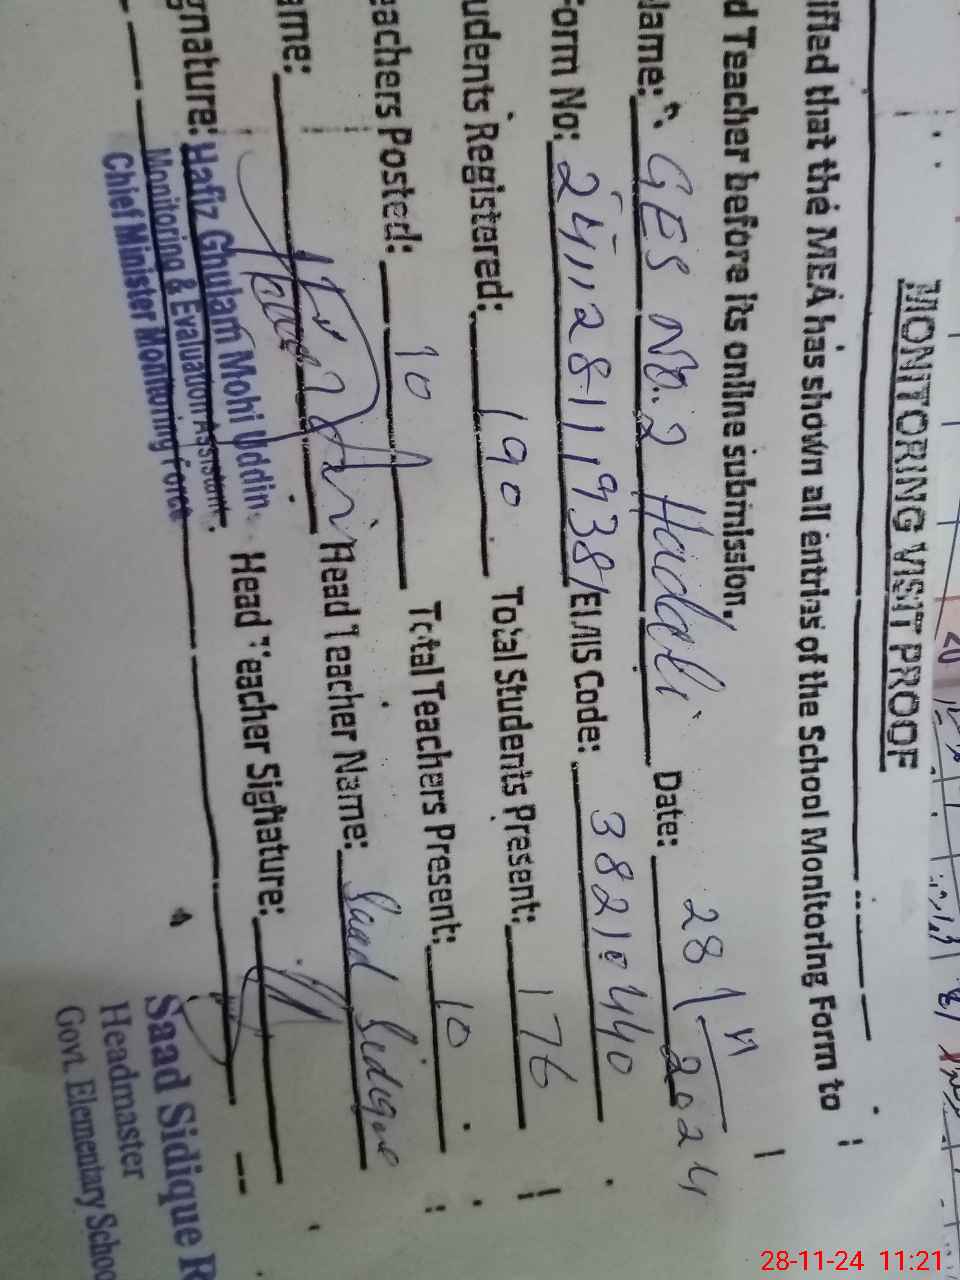 MONITORING VISIT PROOF
ified that the MEA has shown all entries of the School Monitoring Form to
d Teacher before its online submission.
Name: GES No. 2 Hadali Date: 28/11/2024
Form No: 241128-11938/EMIS Code: 38210440
udents Registered: 190 Total Students Present: 176
eachers Posted: 10 Total Teachers Present: 10
ame: Head Teacher Name: Saad Sidique
gnature: Head Teacher Signature:
Hafiz Ghulam Mohi Uddin
Monitoring & Evaluation Assistant
Chief Minister Monitoring Force
Saad Sidique R
Headmaster
Govt. Elementary Schoo
28-11-24 11:21